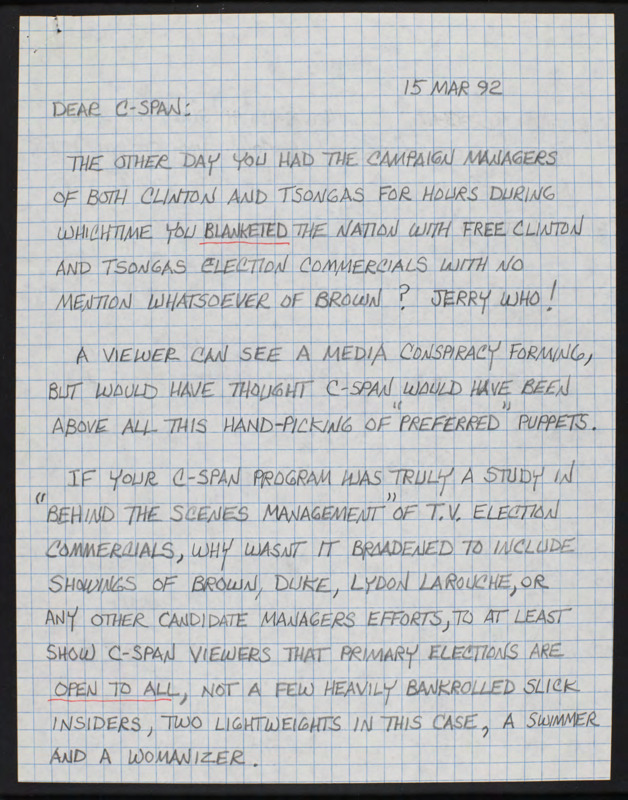 15 MAR 92
DEAR C-SPAN:
THE OTHER DAY YOU HAD THE CAMPAIGN MANAGERS
OF BOTH CLINTON AND TSONGAS FOR HOURS DURING
WHICHTIME YOU BLANKETED THE NATION WITH FREE CLINTON
AND TSONGAS ELECTION COMMERCIALS WITH NO
MENTION WHATSOEVER OF BROWN? JERRY WHO!
A VIEWER CAN SEE A MEDIA CONSPIRACY FORMING,
BUT WOULD HAVE THOUGHT C-SPAN WOULD HAVE BEEN
ABOVE ALL THIS HAND-PICKING OF "PREFERRED" PUPPETS.
IF YOUR C-SPAN PROGRAM WAS TRULY A STUDY IN
"BEHIND THE SCENES MANAGEMENT" OF T.V. ELECTION
COMMERCIALS, WHY WASNT IT BROADENED TO INCLUDE
SHOWINGS OF BROWN, DUKE, LYDON LAROUCHE, OR
ANY OTHER CANDIDATE MANAGERS EFFORTS, TO AT LEAST
SHOW C-SPAN VIEWERS THAT PRIMARY ELECTIONS ARE
OPEN TO ALL, NOT A FEW HEAVILY BANKROLLED SLICK
INSIDERS, TWO LIGHTWEIGHTS IN THIS CASE, A SWIMMER
AND A WOMANIZER.